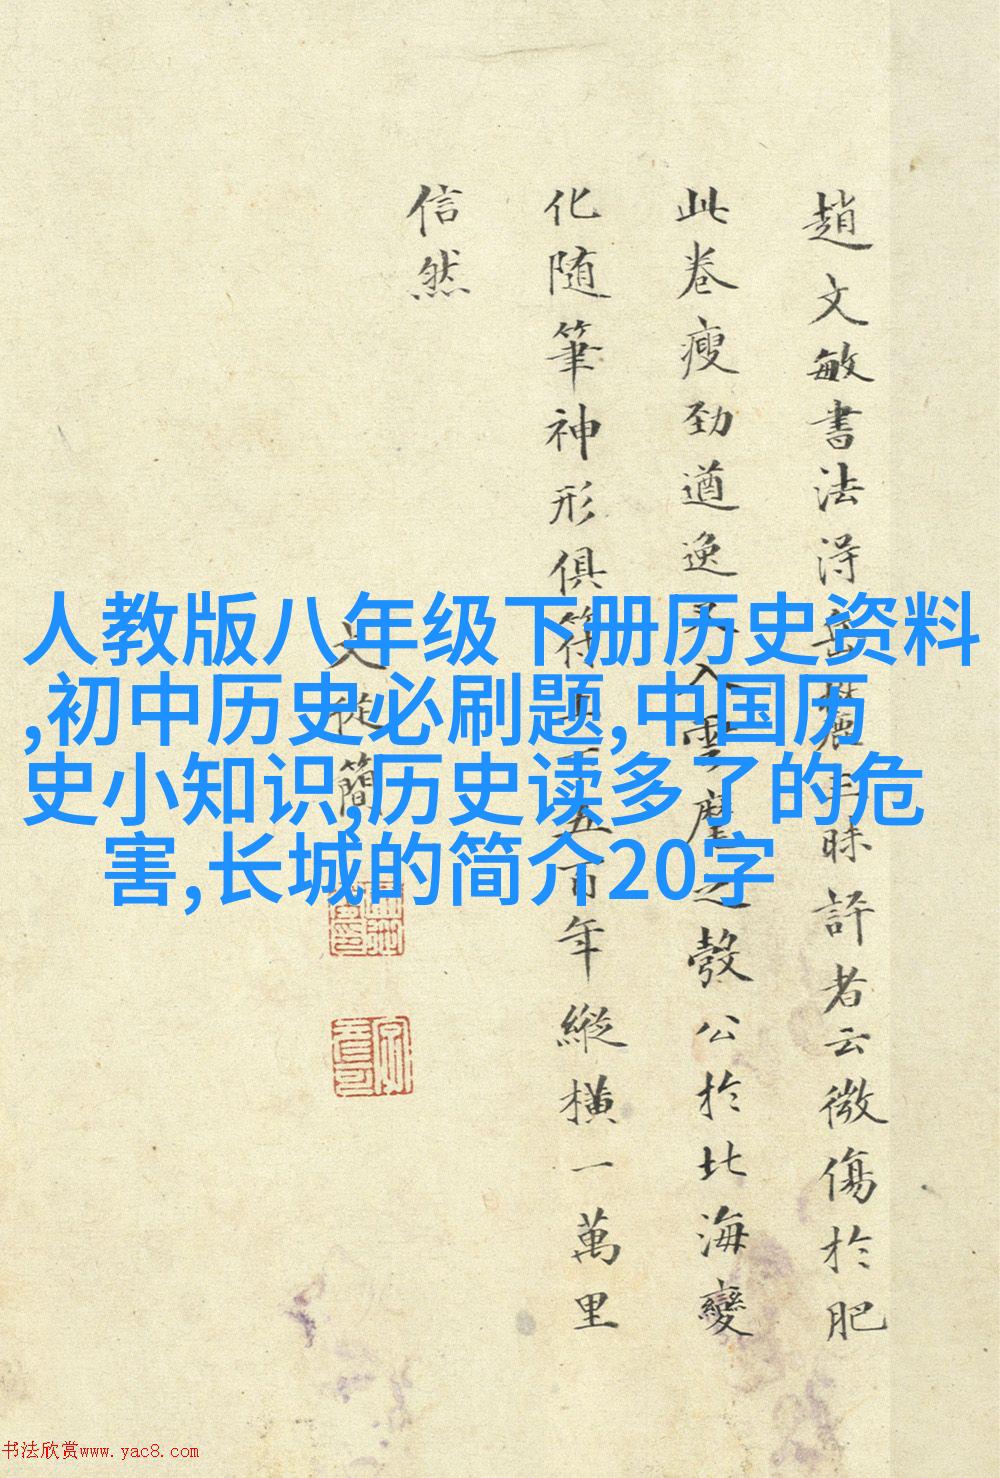 趙文敏書法淂岳麓三昧評者云微傷於肥
此卷瘦勁遒逸入雲麾之彀公於北海變
化随筆神形俱符上下五百年縱橫一萬里
信然
文從簡
人教版八年级下册历史资料
,初中历史必刷题,中国历
史小知识,历史读多了的危
害,长城的简介20字
书法欣赏www.yac8.com